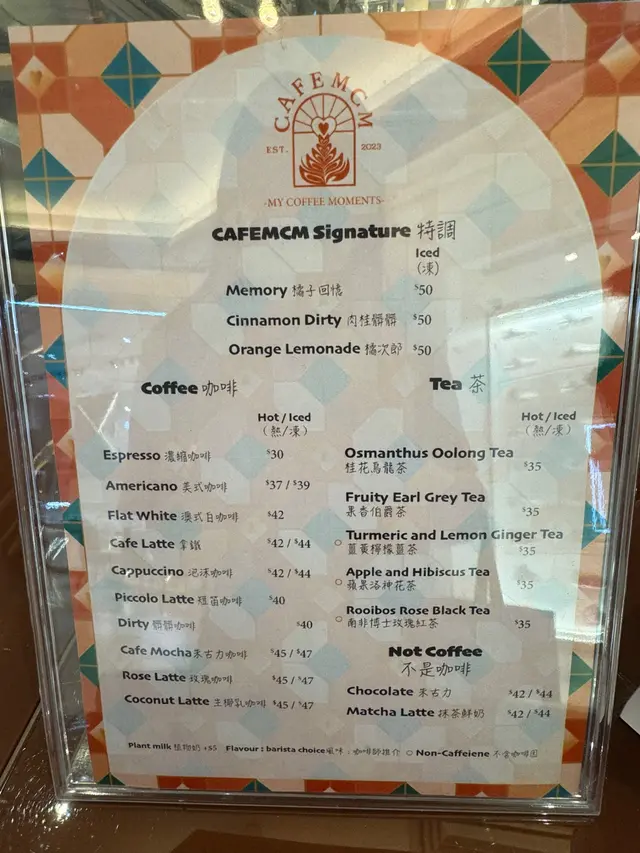 CAFEMCM
EST. 2023
-MY COFFEE MOMENTS-
CAFEMCM Signature 特調
Iced
(凍)
Memory 橘子回憶 $50
Cinnamon Dirty 肉桂髒髒 $50
Orange Lemonade 橘次郎 $50
Coffee 咖啡
Hot / Iced
(熱/凍)
Espresso 濃縮咖啡 $30
Americano 美式咖啡 $37 / $39
Flat White 澳式白咖啡 $42
Cafe Latte 拿鐵 $42 / $44
Cappuccino 泡沫咖啡 $42 / $44
Piccolo Latte 短笛咖啡 $40
Dirty 髒髒咖啡 $40
Cafe Mocha朱古力咖啡 $45 / $47
Rose Latte 玫瑰咖啡 $45 / $47
Coconut Latte 生椰乳咖啡 $45 / $47
Tea 茶
Hot / Iced
(熱/凍)
Osmanthus Oolong Tea
桂花烏龍茶 $35
Fruity Earl Grey Tea
果香伯爵茶 $35
○ Turmeric and Lemon Ginger Tea
薑黃檸檬薑茶 $35
○ Apple and Hibiscus Tea
蘋果洛神花茶 $35
○ Rooibos Rose Black Tea
南非博士玫瑰紅茶 $35
Not Coffee
不是咖啡
Chocolate 朱古力 $42 / $44
Matcha Latte 抹茶鮮奶 $42 / $44
Plant milk 植物奶 +$5 Flavour : barista choice風味 : 咖啡師推介 ○ Non-Caffeiene 不含咖啡因